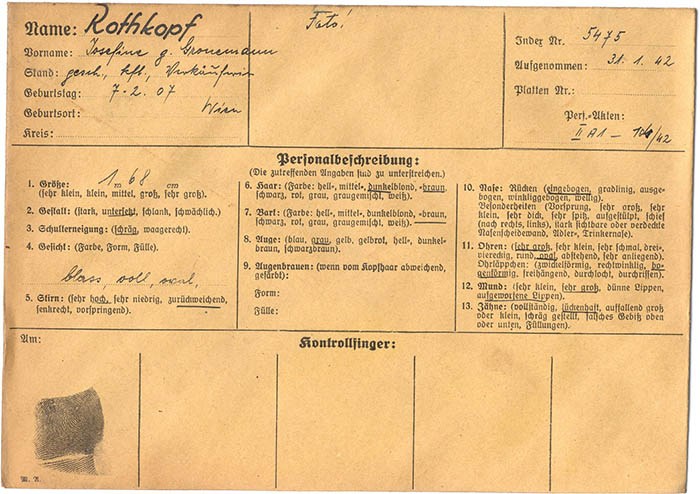 Name: Rothkopf
Vorname: Josefine g. Gronemann
Stand: gesch., kfl., Verkäuferin
Geburtstag: 7.2.07
Geburtsort: Wien
Kreis:
Foto!
Index Nr. 5475
Aufgenommen: 31.1.42
Platten Nr.:
Pers.-Akten:
II A1 – /42
Personalbeschreibung:
(Die zutreffenden Angaben sind zu unterstreichen.)
1. Größe: 1 m 68 cm
(sehr klein, klein, mittel, groß, sehr groß).
2. Gestalt: (stark, untersetzt, schlank, schwächlich).
3. Schulterneigung: (schräg, waagerecht).
4. Gesicht: (Farbe, Form, Fülle).
blass, voll, oval,
5. Stirn: (sehr hoch, sehr niedrig, zurückweichend,
senkrecht, vorspringend).
6. Haar: (Farbe: hell-, mittel-, dunkelblond, -braun,
schwarz, rot, grau, graugemischt, weiß).
7. Bart: (Farbe: hell-, mittel-, dunkelblond, -braun,
schwarz, rot, grau, graugemischt, weiß).
8. Auge: (blau, grau, gelb, gelbrot, hell-, dunkel-
braun, schwarzbraun).
9. Augenbrauen: (wenn vom Kopfhaar abweichend,
gefärbt):
Form:
Fülle:
10. Nase: Rücken (eingebogen, gradlinig, ausge-
bogen, winkliggebogen, wellig).
Besonderheiten (Vorsprung, sehr groß, sehr
klein, sehr dick, sehr spitz, aufgestülpt, schief
(nach rechts, links), stark sichtbare oder verdeckte
Nasenscheidewand, Adler-, Trinkernase).
11. Ohren: (sehr groß, sehr klein, sehr schmal, drei-,
viereckig, rund, oval, abstehend, sehr anliegend).
Ohrläppchen: (zwickelförmig, rechtwinklig, bo-
genförmig, freihängend, durchlocht, durchrissen).
12. Mund: (sehr klein, sehr groß, dünne Lippen,
aufgeworfene Lippen).
13. Zähne: (vollständig, lückenhaft, auffallend groß
oder klein, schräg gestellt, falsches Gebiß oben
oder unten, Füllungen).
Am:
Kontrollfinger: